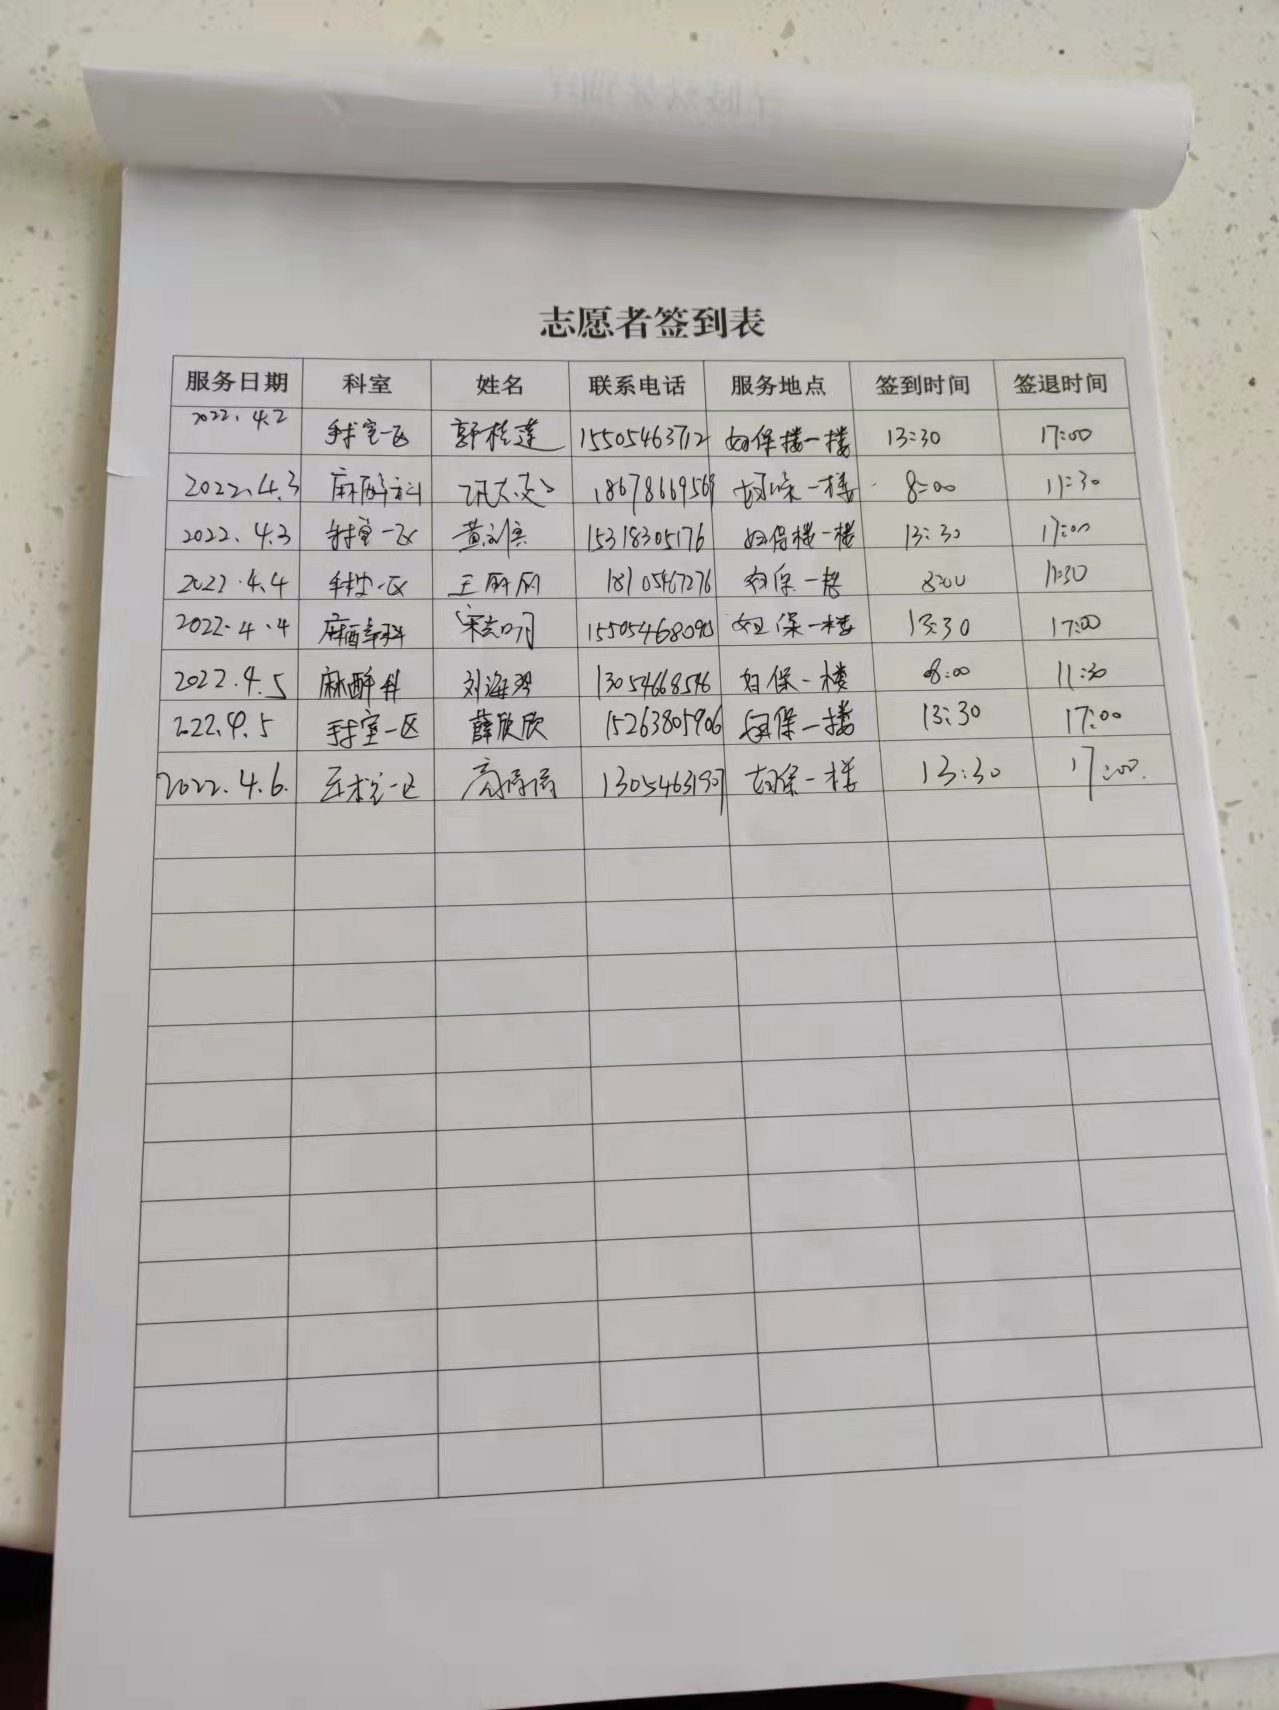 志愿者签到表
服务日期 科室 姓名 联系电话 服务地点 签到时间 签退时间
2022.4.2 手术室一区 郭桂莲 15505463712 妇保楼一楼 13:30 17:00
2022.4.3 麻醉科 妇保一楼 8:00 11:30
2022.4.3 手术室一区 15318305176 妇保楼一楼 13:30 17:00
2022.4.4 手术室一区 王丽丽 18105467276 妇保一楼 8:00 11:30
2022.4.4 麻醉科 妇保一楼 13:30 17:00
2022.4.5 麻醉科 13054668546 妇保一楼 8:00 11:30
2022.4.5 手术室一区 薛欣欣 15263805906 妇保一楼 13:30 17:00
2022.4.6. 手术室一区 高倩倩 妇保一楼 13:30 17:00.